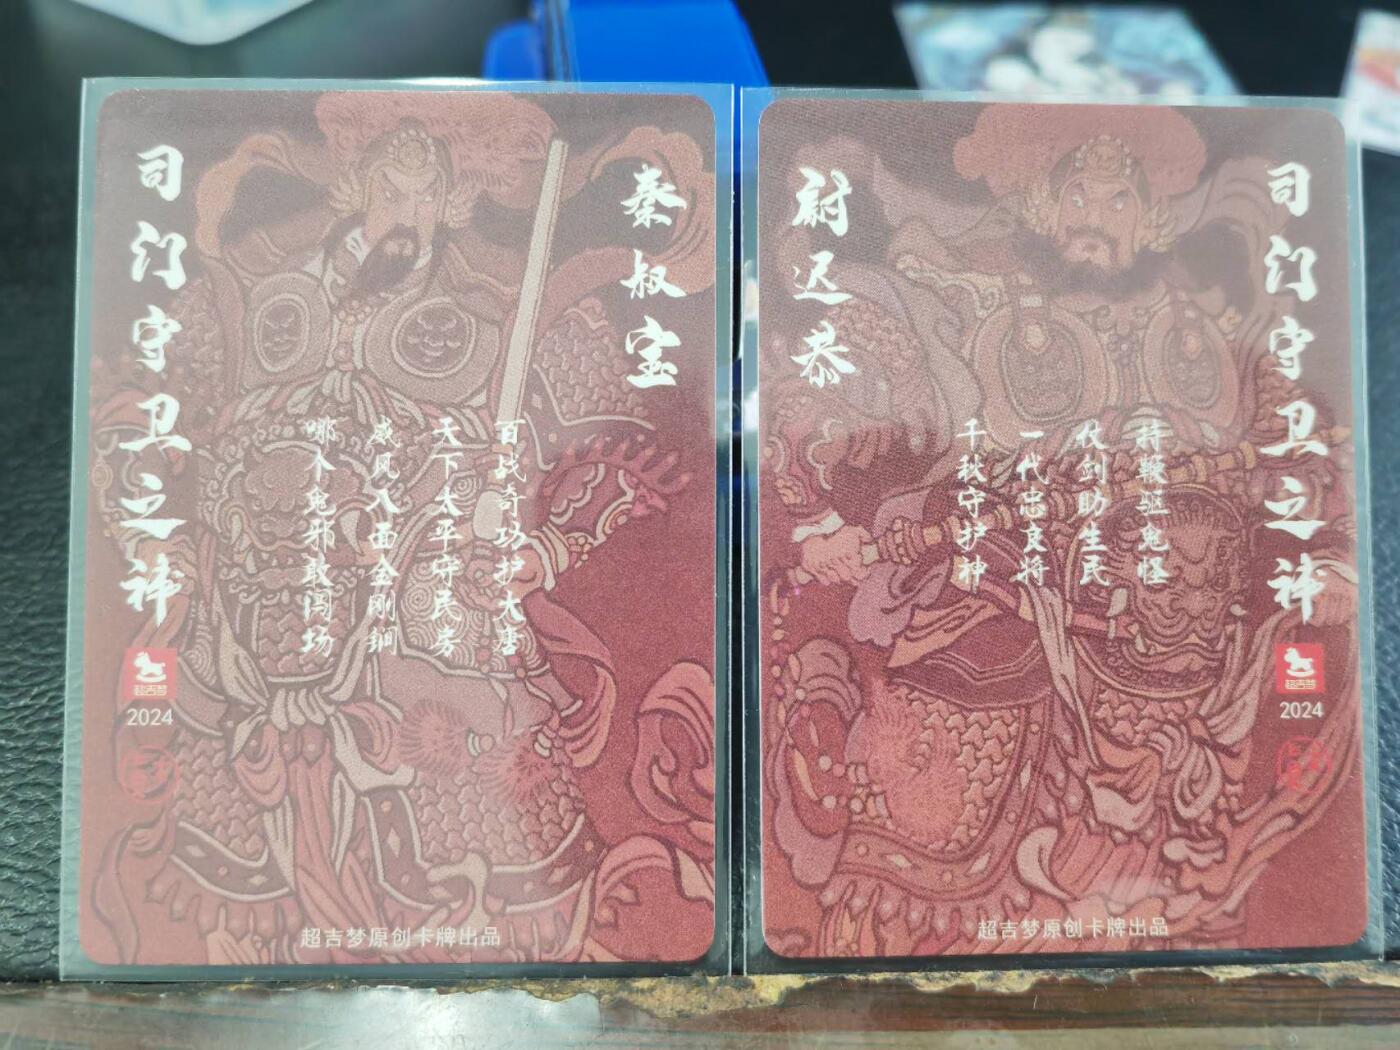 秦叔宝
百战奇功护大唐
天下太平守民房
威风八面金刚锏
哪个鬼邪敢闯场
司门守卫之神
超吉梦
2024
超吉梦原创卡牌出品
司门守卫之神
持鞭驱鬼怪
仗剑助生民
一代忠良将
千秋守护神
尉迟恭
超吉梦
2024
超吉梦原创卡牌出品